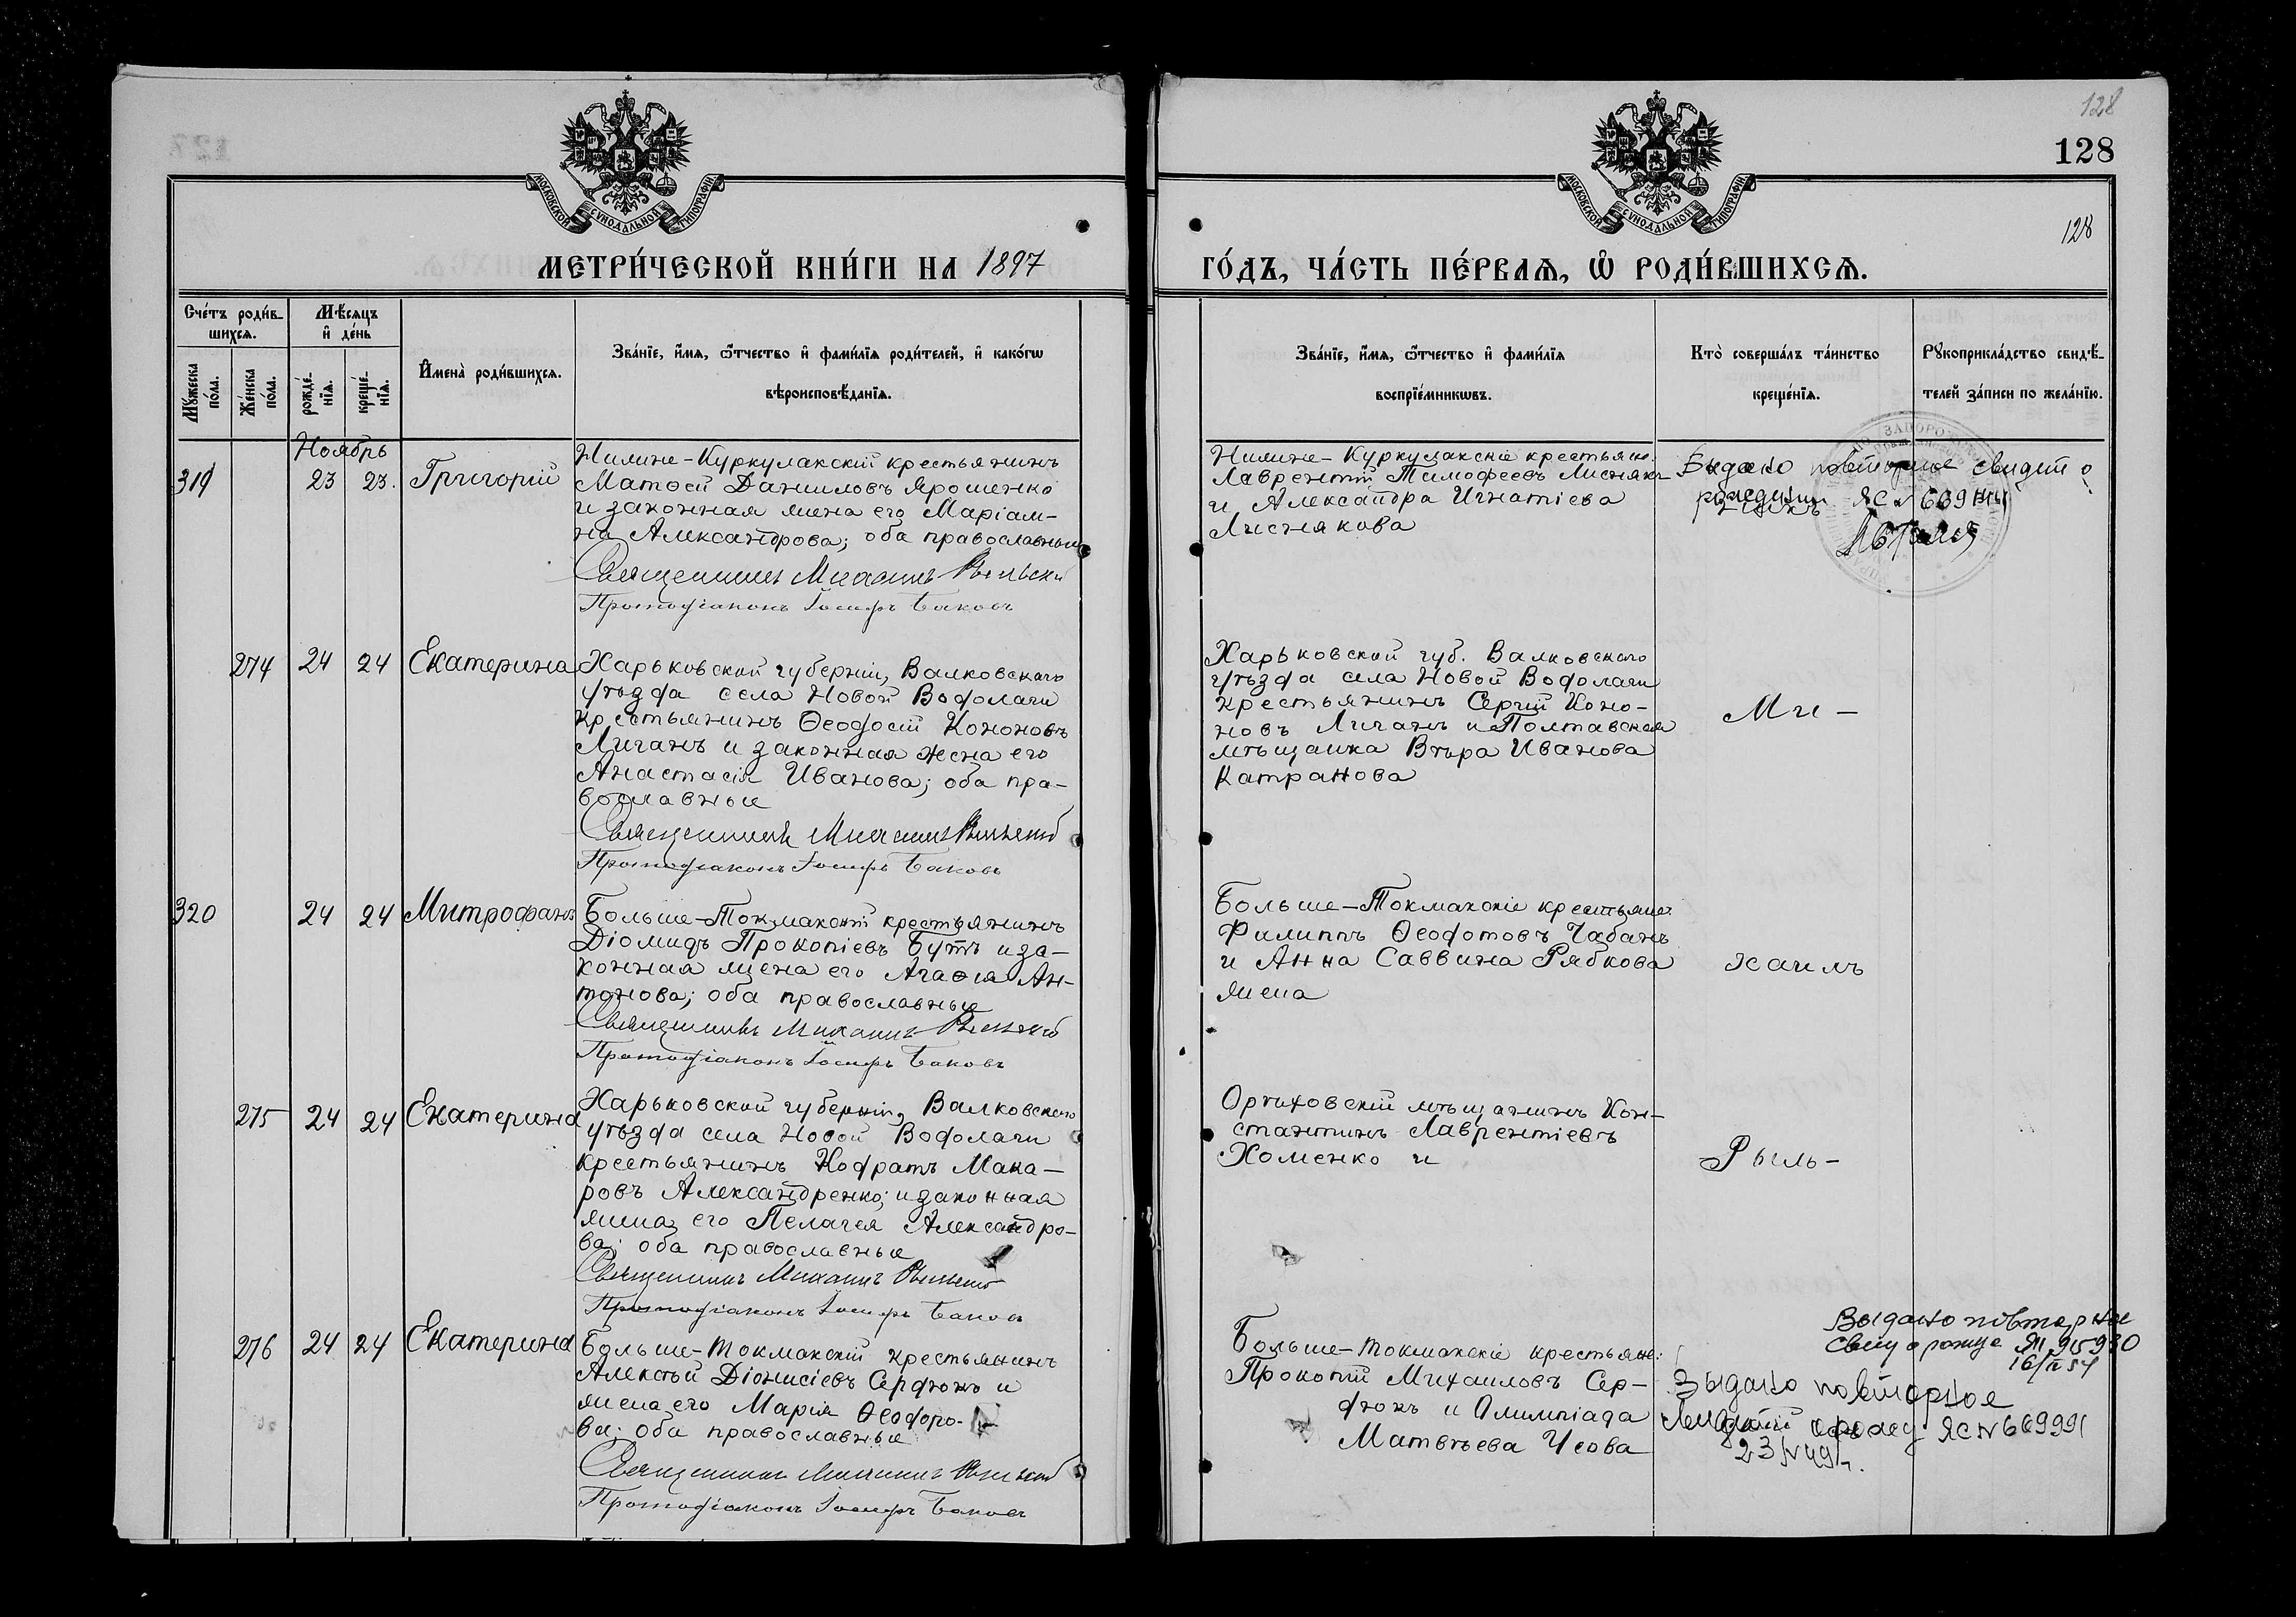 128
128
128
МОСКОВСКОЙ СѴНОДАЛЬНОЙ ТИПОГРАФІИ
МОСКОВСКОЙ СѴНОДАЛЬНОЙ ТИПОГРАФІИ
МЕТРИ́ЧЕСКОЙ КНИ́ГИ НА 1897
ГО́ДЪ, ЧА́СТЬ ПЕ́РВАѦ, Ѡ҆ РОДИ́ВШИХСѦ.
Сче́тъ роди́в-
шихсѧ.
Мѣ́сѧцъ
и҆ де́нь
Мꙋ́жеска по́ла.
Же́нска по́ла.
рожде́-
нїѧ.
креще́-
нїѧ.
И҆мена̀ роди́вшихсѧ.
Зва́нїе, и҆́мѧ, ѻ҆́тчество и҆ фами́лїѧ роди́телей, и҆ како́гѡ
вѣроисповѣ́данїѧ.
Зва́нїе, и҆́мѧ, ѻ҆́тчество и҆ фами́лїѧ
воспрїе́мникѡвъ.
Кто̀ соверша́лъ та́инство
креще́нїѧ.
Рꙋкоприкла́дство свидѣ́-
телей за́писи по жела́нїю.
Ноябрь
319 23 23. Григорій
Нилине-Куркулакскій крестьянинъ
Матѳей Даниловъ Ярошенко
и законная жена его Маріам-
на Александрова; оба православные
Священникъ Михаилъ Рыльскій
Протодіаконъ Іосифъ Баковъ
Нилине-Куркулакскіе крестьяне:
Лаврентій Тимофеевъ Лиснякъ
и Александра Игнатіева
Лиснякова
Выдано повторное свидет о
274 24 24 Екатерина
Харьковской губерніи, Валковскаго
уѣзда села Новой Водолаги
крестьянинъ Ѳеодосій Кононовъ
Лиганъ и законная жена его
Анастасія Иванова; оба пра-
вославные
Священникъ Михаилъ Рыльскій
Протодіаконъ Іосифъ Баковъ
Харьковской губ. Валковскаго
уѣзда села Новой Водолаги
крестьянинъ Сергій Коно-
новъ Лиганъ и Полтавская
мѣщанка Вѣра Иванова
Катранова
Ми-
320 24 24 Митрофанъ
Больше-Токмакскій крестьянинъ
Діомидъ Прокопіевъ Бутъ и за-
конная жена его Агаѳія Ан-
тонова; оба православные
Священникъ Михаилъ Рыльскій
Протодіаконъ Іосифъ Баковъ
Больше-Токмакскіе крестьяне:
Филиппъ Ѳеодотовъ Чабанъ
и Анна Саввина Рябкова
жена
хаилъ
275 24 24 Екатерина
Харьковской губерніи, Валковскаго
уѣзда села Новой Водолаги
крестьянинъ Кодратъ Мака-
ровъ Александренко; и законная
жена его Пелагея Александро-
ва; оба православные
Священникъ Михаилъ Рыльскій
Протодіаконъ Іосифъ Баковъ
Орѣховскій мѣщанинъ Кон-
стантинъ Лаврентіевъ
Хоменко и
Рыль-
276 24 24 Екатерина
Больше-Токмакскій крестьянинъ
Алексѣй Діонисіевъ Сердюкъ и
жена его Марія Ѳеодоро-
ва; оба православные
Священникъ Михаилъ Рыльскій
Протодіаконъ Іосифъ Баковъ
Больше-Токмакскіе крестьяне:
Прокопій Михаиловъ Сер-
дюкъ и Олимпіада
Матвѣева Усова
Выдано повторное
Выдано повторное
ЯС № 669991